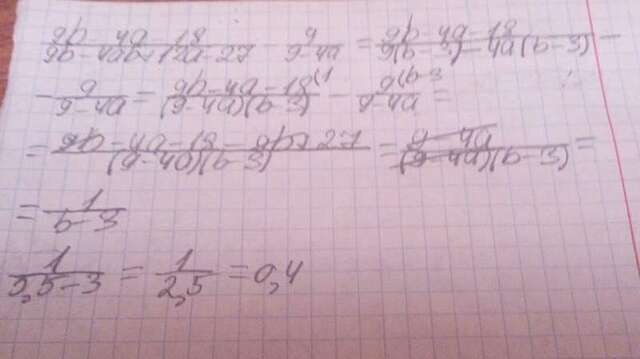 9b - 4a - 18 / 9b - 4ab + 12a - 27 - 9 / 9 - 4a = 9b - 4a - 18 / 9(b - 3) - 4a(b - 3) -
- 9 / 9 - 4a = 9b - 4a - 18 (1 / (9 - 4a)(b - 3) - 9 (b - 3 / 9 - 4a =
= 9b - 4a - 18 - 9b + 27 / (9 - 4a)(b - 3) = 9 - 4a / (9 - 4a)(b - 3) =
= 1 / b - 3
1 / 5,5 - 3 = 1 / 2,5 = 0,4